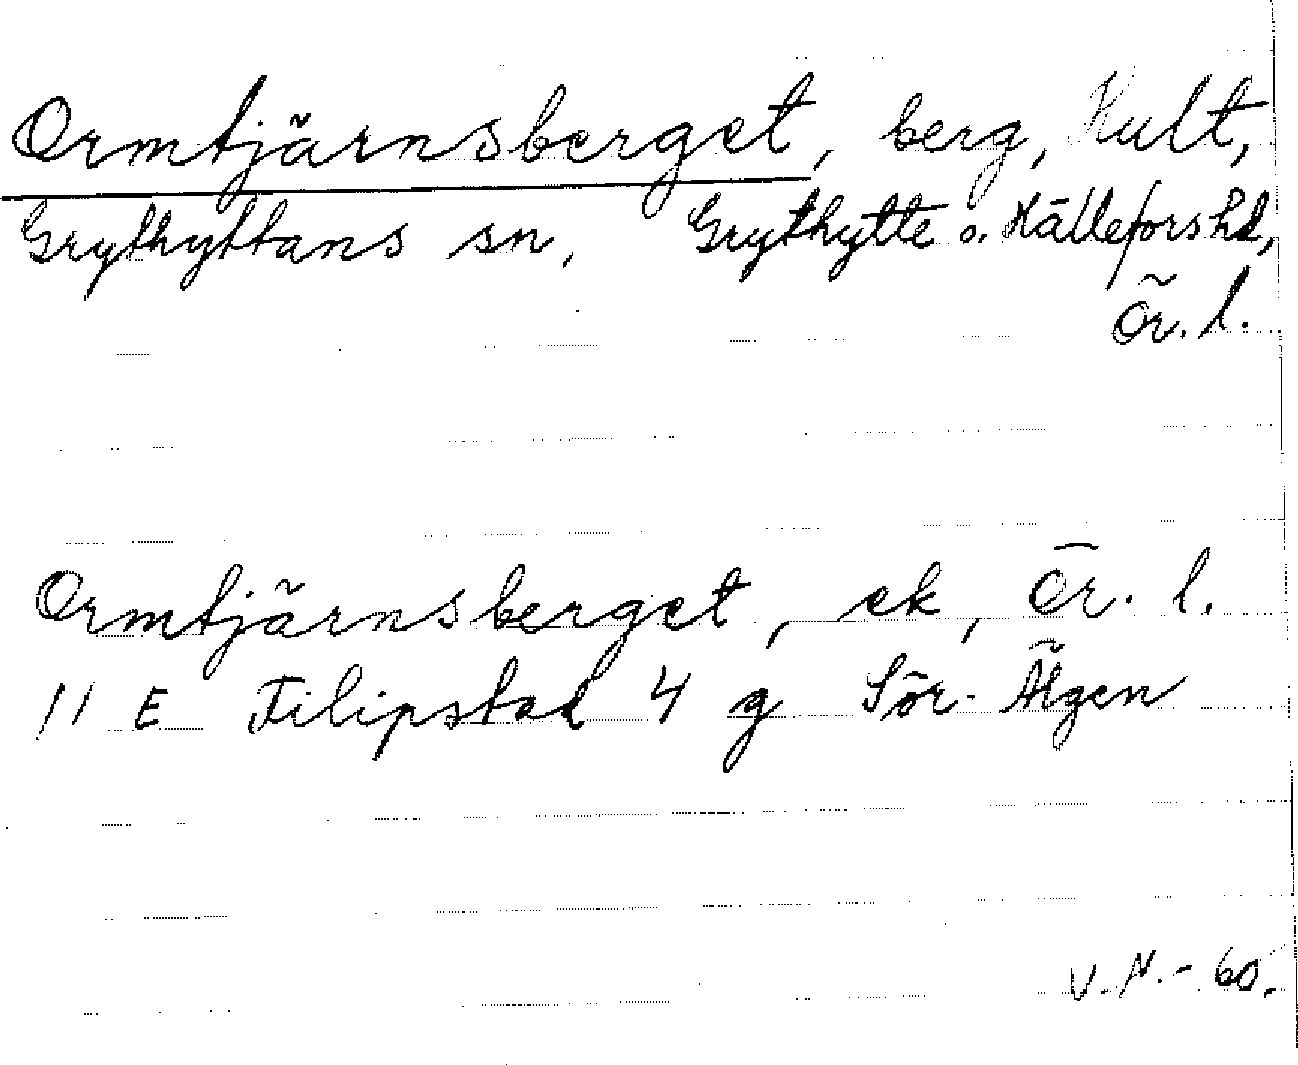 Ormtjärnsberget, berg, Hult,
Grythyttans sn, Grythytte o. Hälleforshd,
Ör. l.
Ormtjärnsberget, ek, Ör. l.
11 E Filipstad 4 g Sör-Älgen
V.N.-60.